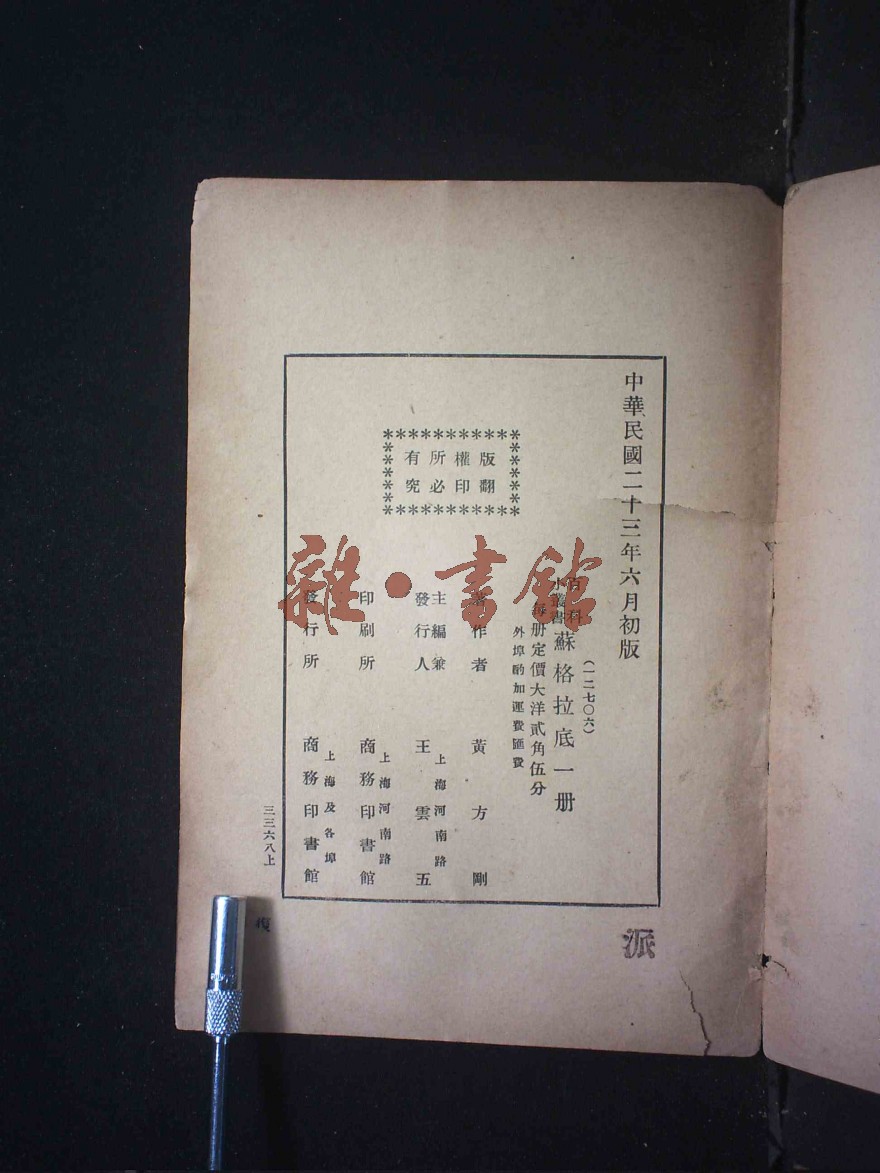 中華民國二十三年六月初版
(一二七〇六)
百科
小叢書
蘇格拉底一册
每册定價大洋貳角伍分
外埠酌加運費匯費
版權所有
翻印必究
著作者 黃方剛
主編兼
發行人
上海河南路
王雲五
印刷所
上海河南路
商務印書館
發行所
上海及各埠
商務印書館
三三六八上
派
雜·書館